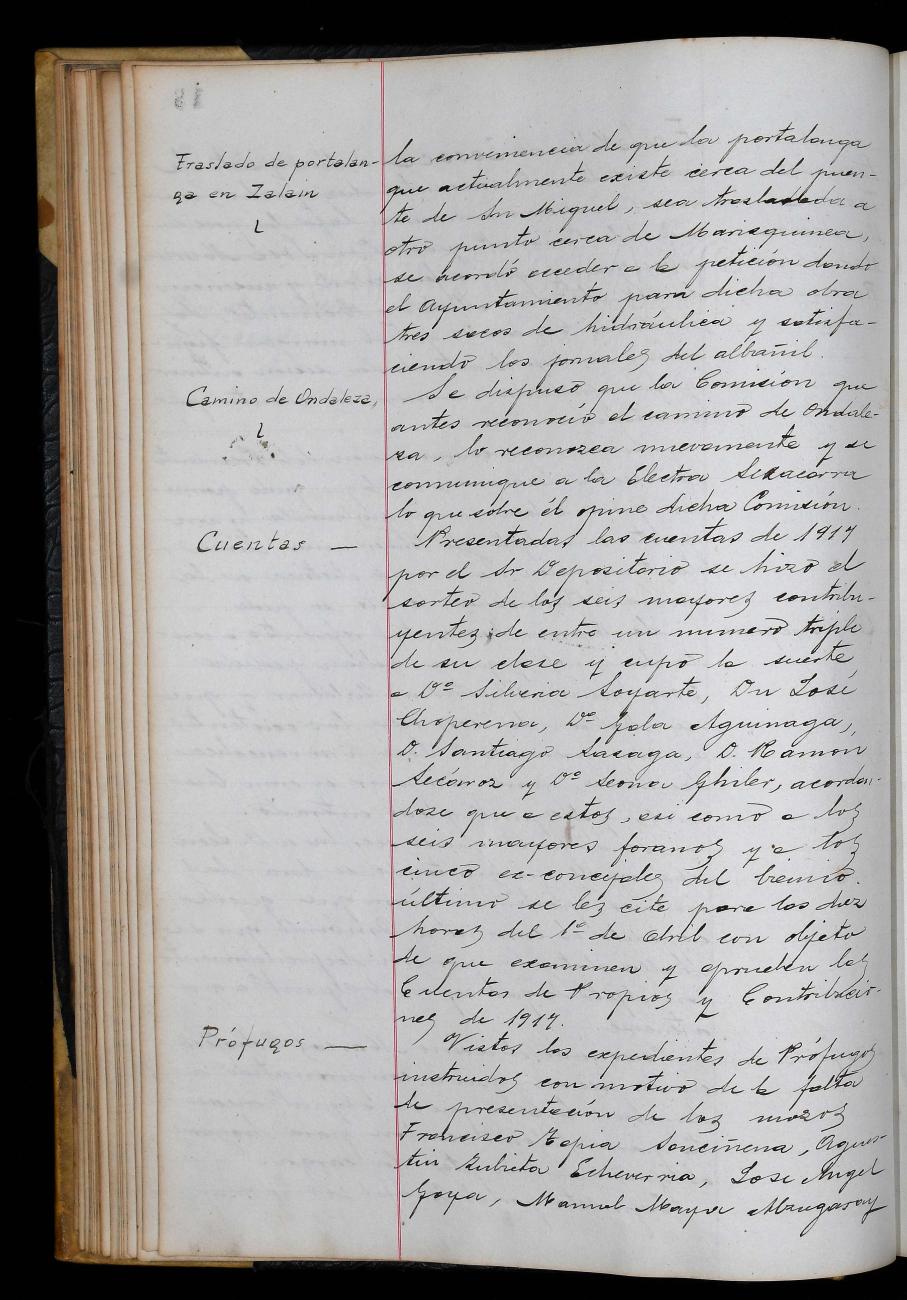 Traslado de portalan-
ga en Zalain
la conveniencia de que la portalanga
que actualmente existe cerca del puen-
te de Sn Miguel, sea trasladada a
otro punto cerca de Marisquinea,
se acordó acceder a la petición dando
el Ayuntamiento para dicha obra
tres sacos de hidráulica y satisfa-
ciendo los jornales del albañil.
Camino de Ondaleza,
Se dispuso que la Comisión que
antes reconoció el camino de Ondale-
za, lo reconozca nuevamente y se
comunique a la Electra Sesacorra
lo que sobre él opine dicha Comisión.
Cuentas —
Presentadas las cuentas de 1917
por el Sr Depositario se hizo el
sorteo de los seis mayores contribu-
yentes de entre un numero triple
de su clase y cupo la suerte
a Dª Silveria Goyarte, Dn José
Choperena, Dª Gala Aguinaga,
D. Santiago Sasaga, D. Ramon
Secároz y Dª Leona Ghiler, acordan-
dose que a estos, asi como a los
seis mayores foranos y a los
cinco ex-concejales del bienio
último se les cite para las diez
horas del 1º de Abril con objeto
de que examinen y aprueben las
Cuentas de Propios y Contribucio-
nes de 1917.
Prófugos —
Vistos los expedientes de Prófugos
instruidos con motivo de la falta
de presentación de los mozos
Francisco Tapia Goñi, Agus-
tin Zubieta Echeverria, Jose Angel
Goya, Manuel Maya Almugaray